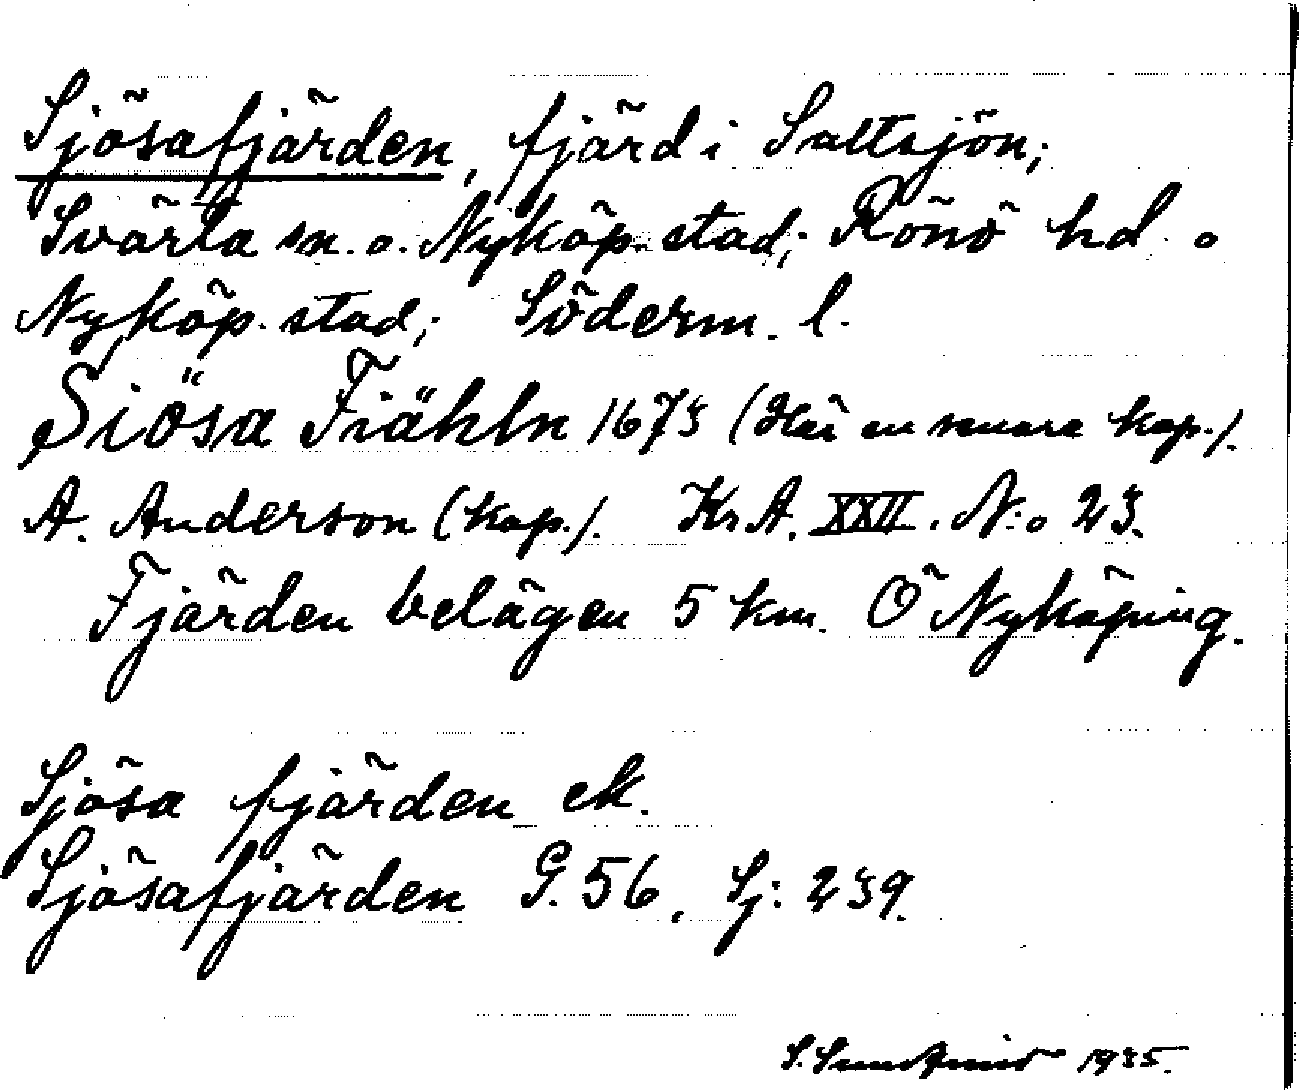 Sjösafjärden, fjärd i Saltsjön;
Svärta sn. o. Nyköp. stad; Rönö hd. o
Nyköp. stad; Söderm. l.
Siösa Fiähln 1673 (Här en senare kop.).
A. Anderson (kop.). KrA. XXII. N:o 23.
Fjärden belägen 5 km. Ö Nyköping.
Sjösa fjärden ek.
Sjösafjärden G. 56, Sj: 239.
S. 1935.